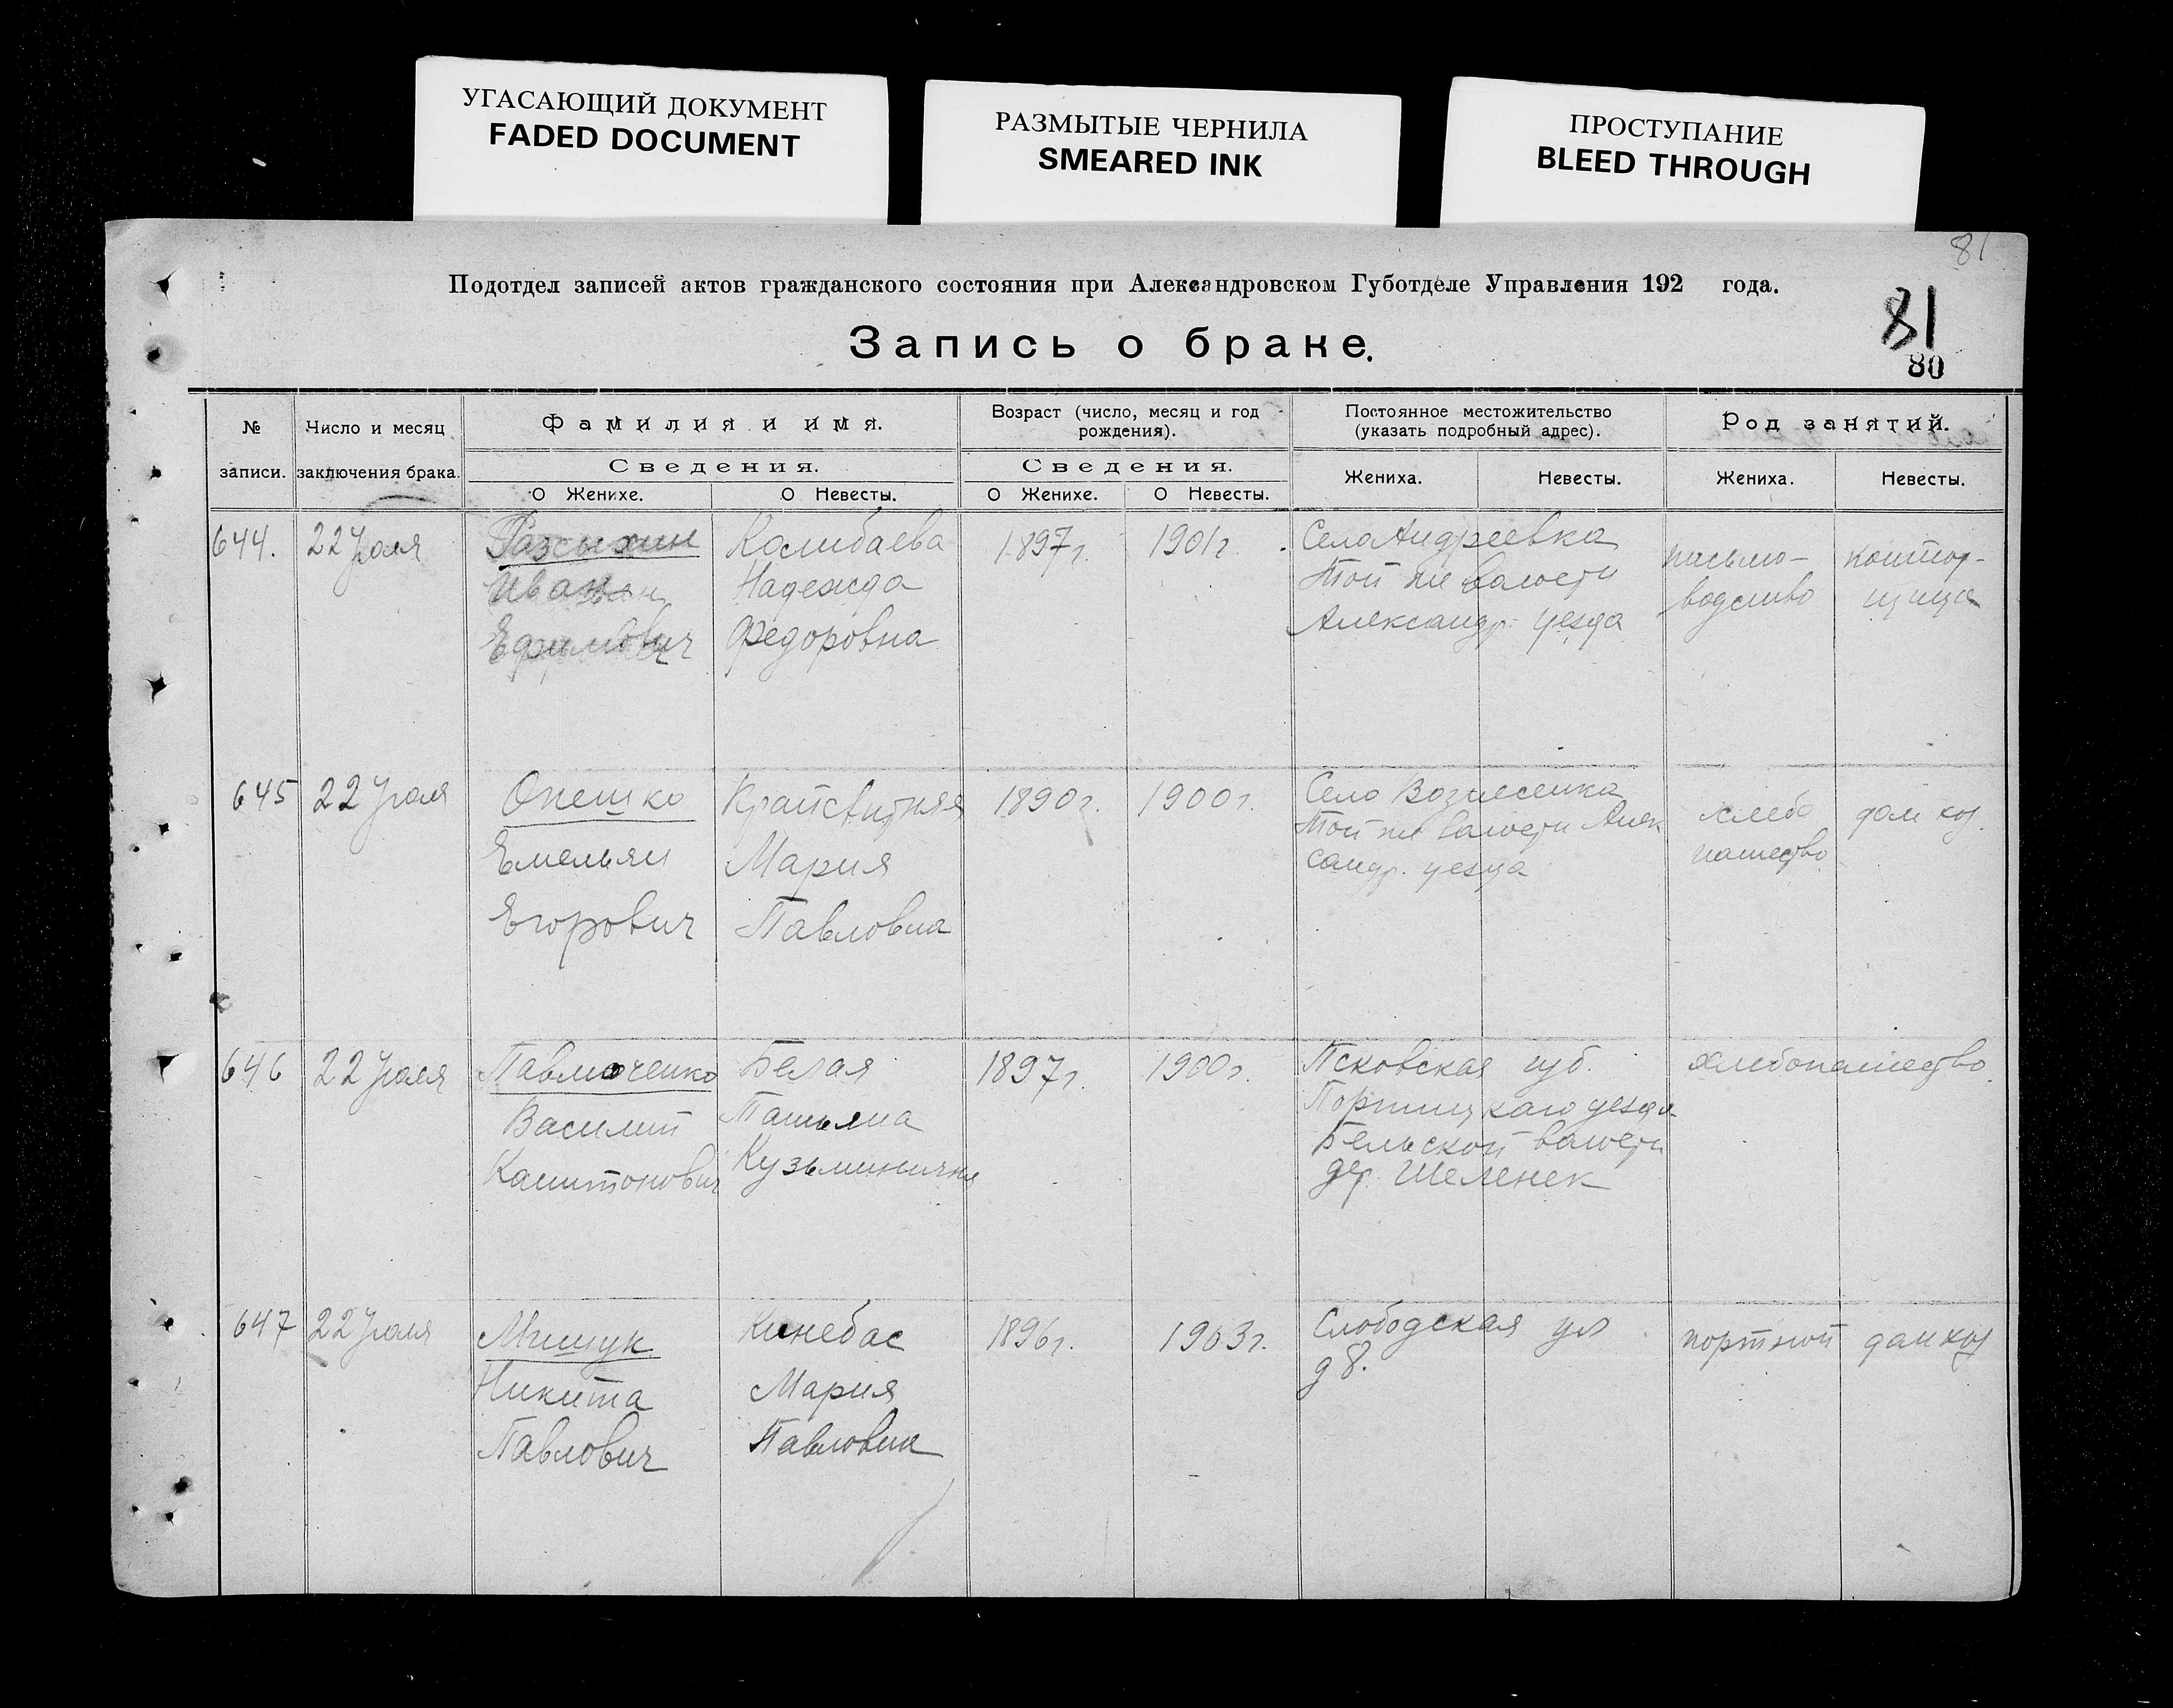 УГАСАЮЩИЙ ДОКУМЕНТ
FADED DOCUMENT
РАЗМЫТЫЕ ЧЕРНИЛА
SMEARED INK
ПРОСТУПАНИЕ
BLEED THROUGH
81
Подотдел записей актов гражданского состояния при Александровском Губотделе Управления 192 года.
81
Запись о браке.
80
№ записи.
Число и месяц заключения брака.
Фамилия и имя.
Сведения.
О Женихе.
О Невесты.
Возраст (число, месяц и год рождения).
Сведения.
О Женихе.
О Невесты.
Постоянное местожительство
(указать подробный адрес).
Жениха.
Невесты.
Род занятий.
Жениха.
Невесты.
644.
22 Июля
Иван
Ефимович
Надежда
Федоровна
1897г.
1901г.
Село Андреевка
той же волости
Александр. уезда
письмо-
водство
контор-
щица
645
22 Июля
Онешко
Емельян
Егорович
Мария
Павловна
1890г.
1900г.
Село Вознесенка
той же волости Алек
сандр. уезда
хлебо
пашество
дом хоз.
646
22 Июля
Павлюченко
Василий
Капитонович
Белая
Татьяна
Кузьминична
1897г.
1900г.
Псковская губ.
уезда
Бельской волости
дер. Шеленек
хлебопашество
647
22 Июля
Мищук
Никита
Павлович
Кинебас
Мария
Павловна
1896г.
1903г.
Слободская ул
д 8.
портной
дом хоз